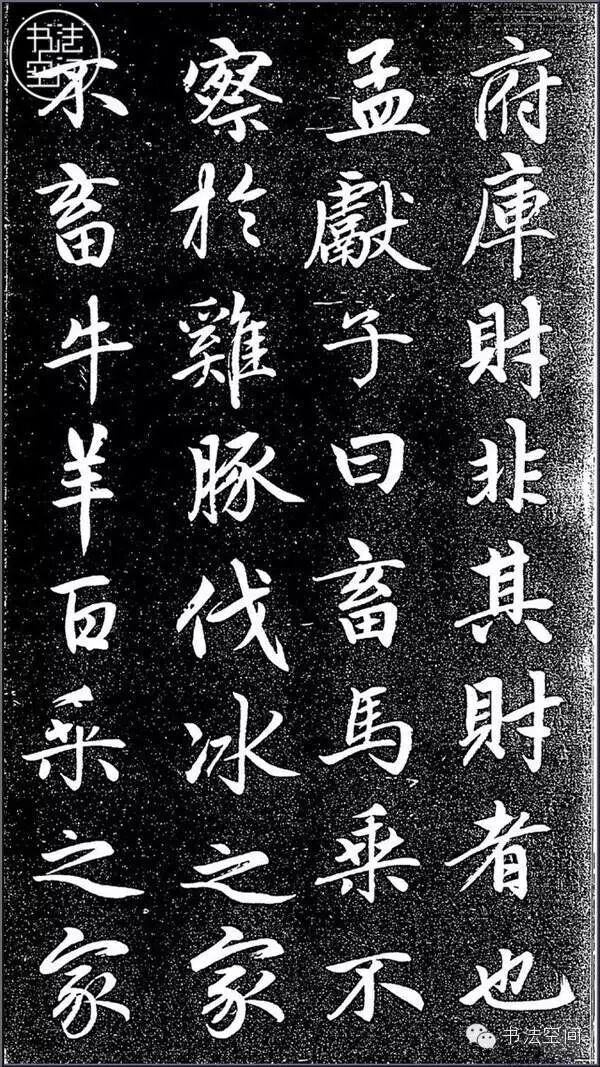 府庫財非其財者也
孟獻子曰畜馬乘不
察於雞豚伐冰之家
不畜牛羊百乘之家
书法空间
书法空间